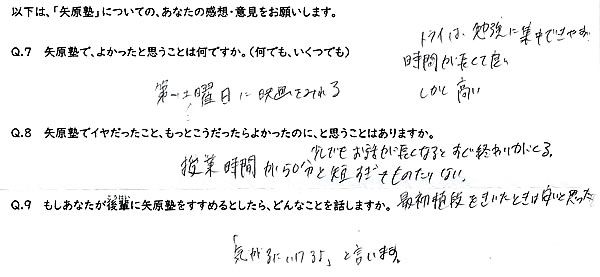 以下は、「矢原塾」についての、あなたの感想・意見をお願いします。
Q.7 矢原塾で、よかったと思うことは何ですか。(何でも、いくつでも)
トライは、勉強に集中できやす
時間が長くて良い
しかし高い
第一土曜日に映画をみれる
Q.8 矢原塾でイヤだったこと、もっとこうだったらよかったのに、と思うことはありますか。
少しでもお話が長くなるとすぐ終わりがくる。
授業時間が50分と短すぎてものたりない。
Q.9 もしあなたが後輩に矢原塾をすすめるとしたら、どんなことを話しますか。
最初値段をきいたときは安いと思った
「気がるにいけるよ」と言います。